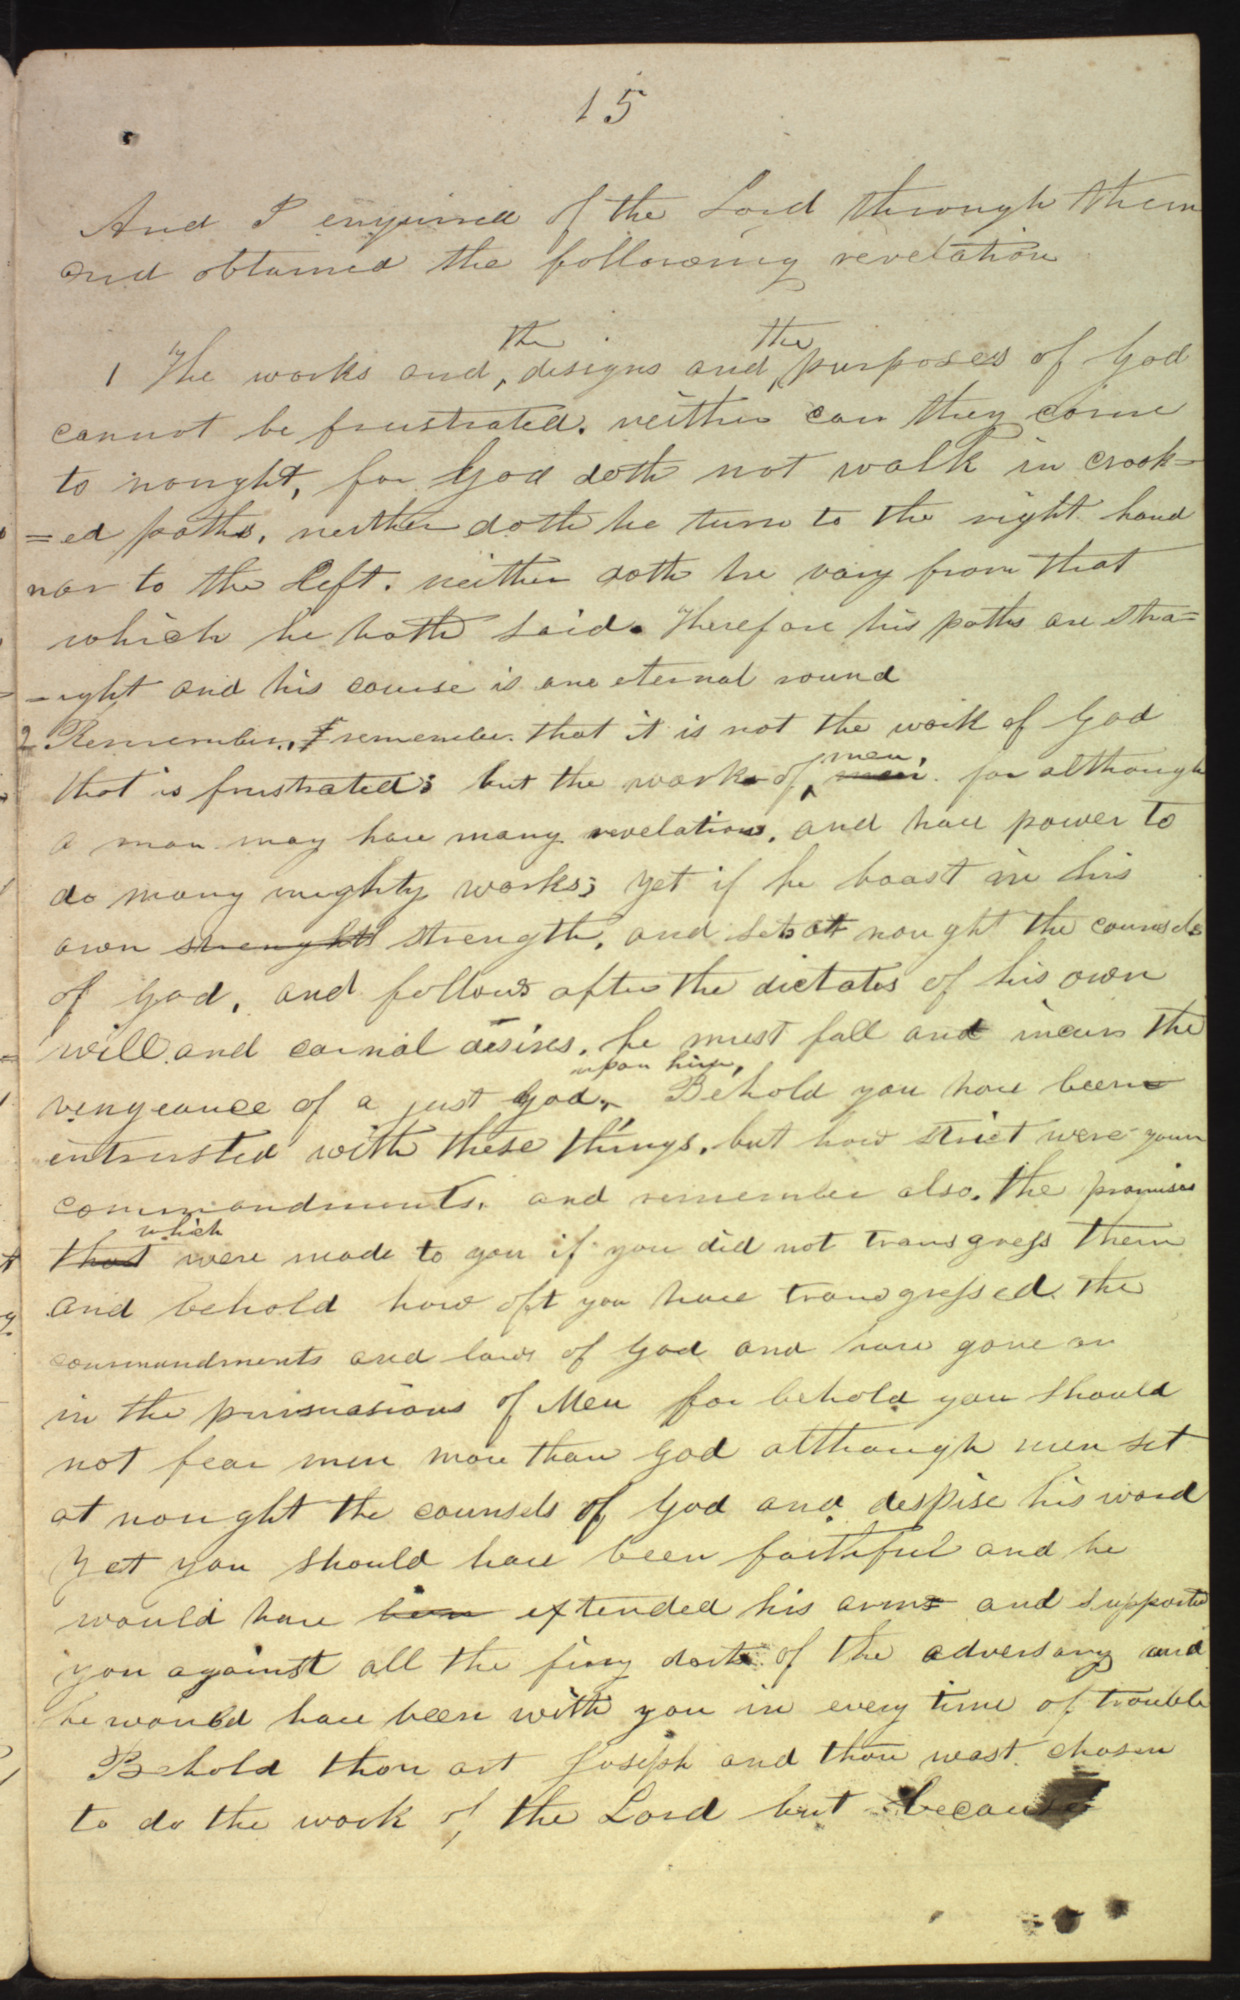 15
And I enquired of the Lord through them
and obtained the following revelation
the the
1 The works and, designs and, purposes of God
cannot be frustrated. neither can they come
to nought, for God doth not walk in crook-
=ed paths, neither doth he turn to the right hand
nor to the Left. neither doth he vary from that
which he hath said. Therefore his paths are stra=
-ight and his course is one eternal round
2 Remember, remember that it is not the work of God
men,
that is frustrated; but the work of men. for although
a man may have many revelations, and have power to
do many mighty works; yet if he boast in his
own strenght strength, and sets at nought the counsels
of God, and follows after the dictates of his own
will and carnal desires. he must fall and incur the
upon him,
vengeance of a just God. Behold you have been
entrusted with these things, but how strict were your
commandments. and remember also, the promises
which
that were made to you if you did not transgress them
and behold how oft you have transgressed the
commandments and laws of God and have gone on
in the persuasions of Men for behold you should
not fear men more than God although men set
at nought the counsels of God and despise his word
Yet you should have been faithful and he
would have been extended his arms and supported
you against all the firey darts of the adversary and
he would have been with you in every time of trouble
Behold thou art Joseph and thou wast chosen
to do the work of the Lord but because